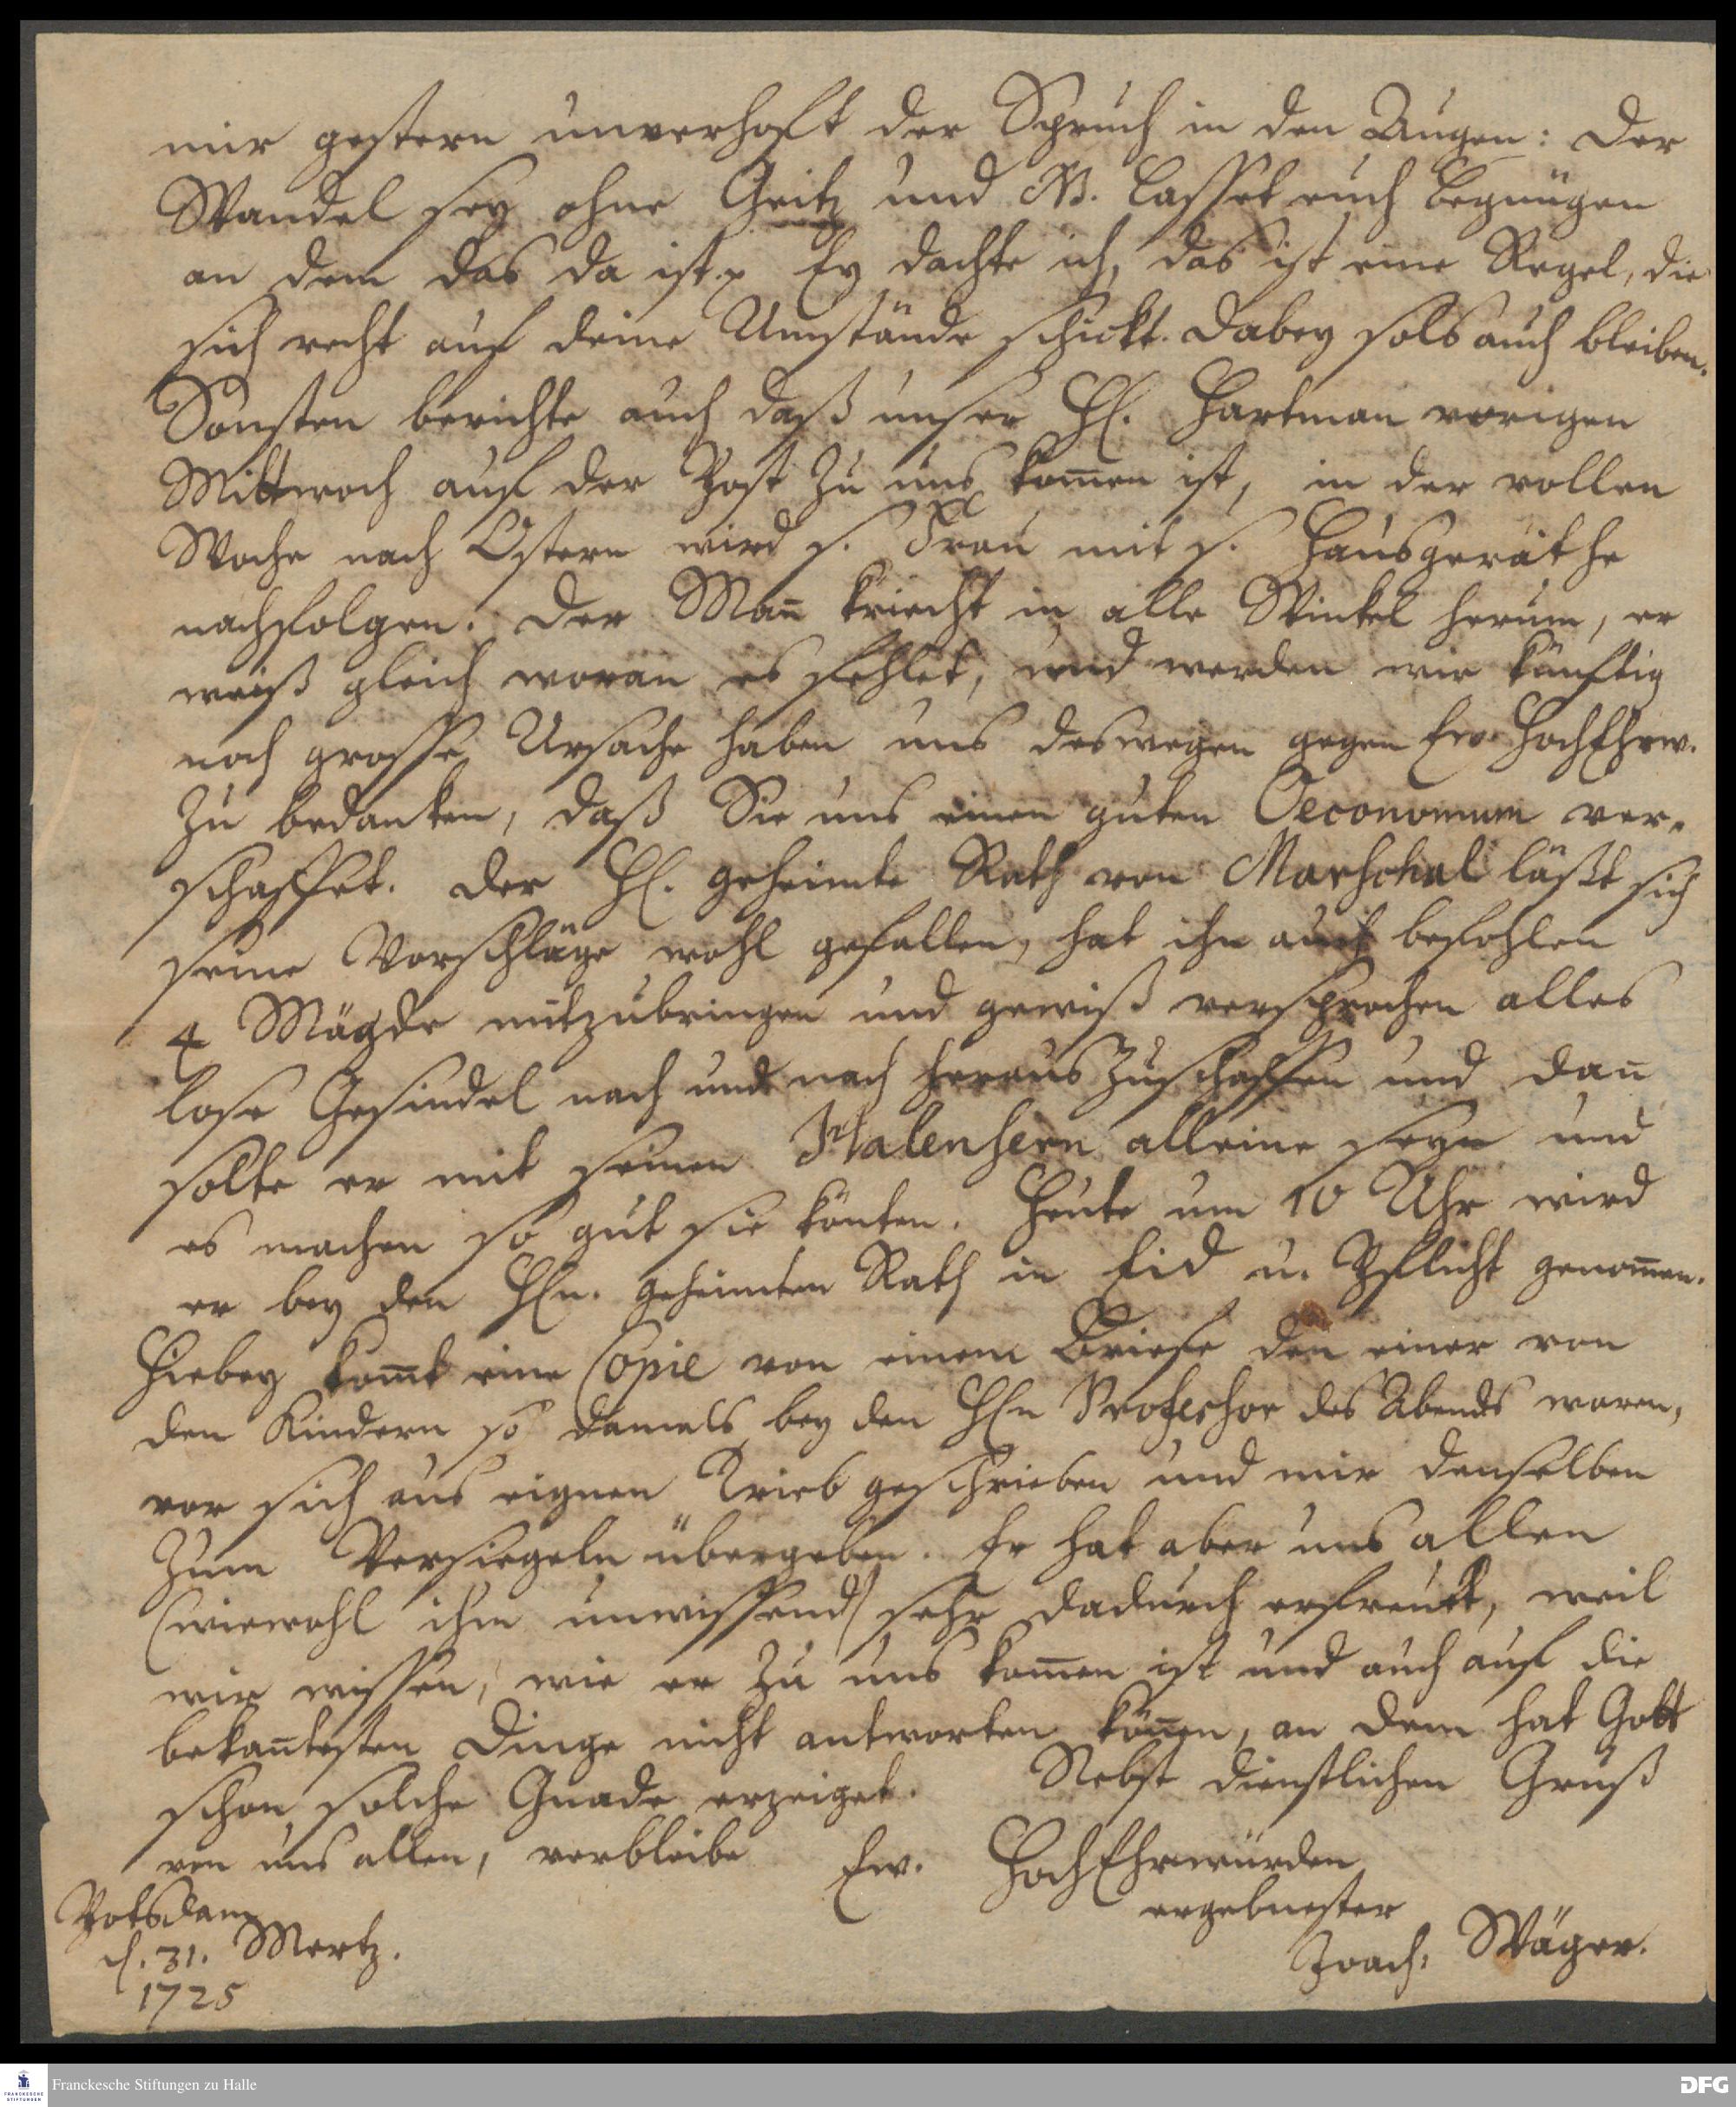 mir gestern unverhoft der Spruch in den Augen: Der
Wandel sey ohne Geitz und NB. lasset euch begnügen
an dem das da ist. Ey dachte ich, das ist eine Regel, die
sich recht auf deine Umstände schickt. Dabey sols auch bleiben.
Sonsten berichte auch daß unser H. Hartman vorigen
Mittwoch auf der Post zu uns kom̄en ist, in der vollen
Woche nach Ostern wird s. Frau mit s. Hausgeräthe
nachfolgen. Der Man̄ kriecht in alle Winkel herum, er
weiß gleich woran es fehlet, und werden wir künftig
noch grosse Ursache haben uns deswegen gegen Ew. HochEhrw.
zu bedanken, daß Sie uns einen guten Oeconomum ver-
schaffet. Der H. geheimte Rath von Marschal läßt sich
seine Vorschläge wohl gefallen, hat ihn auch befohlen
4 Mägde mitzubringen und gewiß versprochen alles
lose Gesindel nach und nach heraus zuschaffen und dan̄
solte er mit seinen Halensern alleine seyn und
es machen so gut sie könten. Heute um 10 Uhr wird
er bey den Hn. geheimten Rath in Eid u. Pflicht genom̄en.
Hiebey kom̄t eine Copie von einem Briefe den einer von
den Kindern so damals bey den Hn Professor des Abends waren,
vor sich aus eignen Trieb geschrieben und mir denselben
zum Versiegeln übergeben. Er hat aber uns allen
(wiewohl ihm unwissend) sehr dadurch erfreut, weil
wir wissen, wie er zu uns kom̄en ist und auch auf die
bekan̄testen Dinge nicht antworten kön̄en, an dem hat Gott
schon solche Gnade erzeiget. Nebst dienstlichen Gruß
von uns allen, verbleibe Ew. HochEhrwürden
ergebnester
Joach: Wäger.
Potsdam
d. 31. Mertz.
1725
Franckesche Stiftungen zu Halle
FRANCKESCHE STIFTUNGEN
DFG